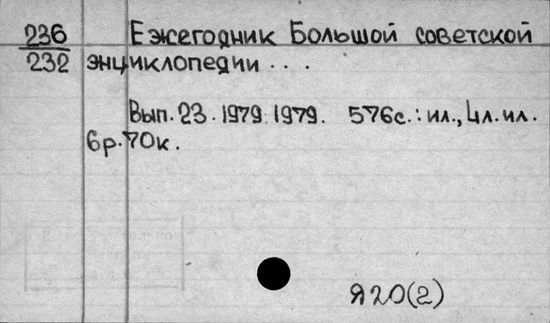 236 Ежегодник Большой советской
232 энциклопедии . . .
Вып. 23. 1979. 1979. 576с.: ил., 4л. ил.
6р. 70к.
Я20(2)